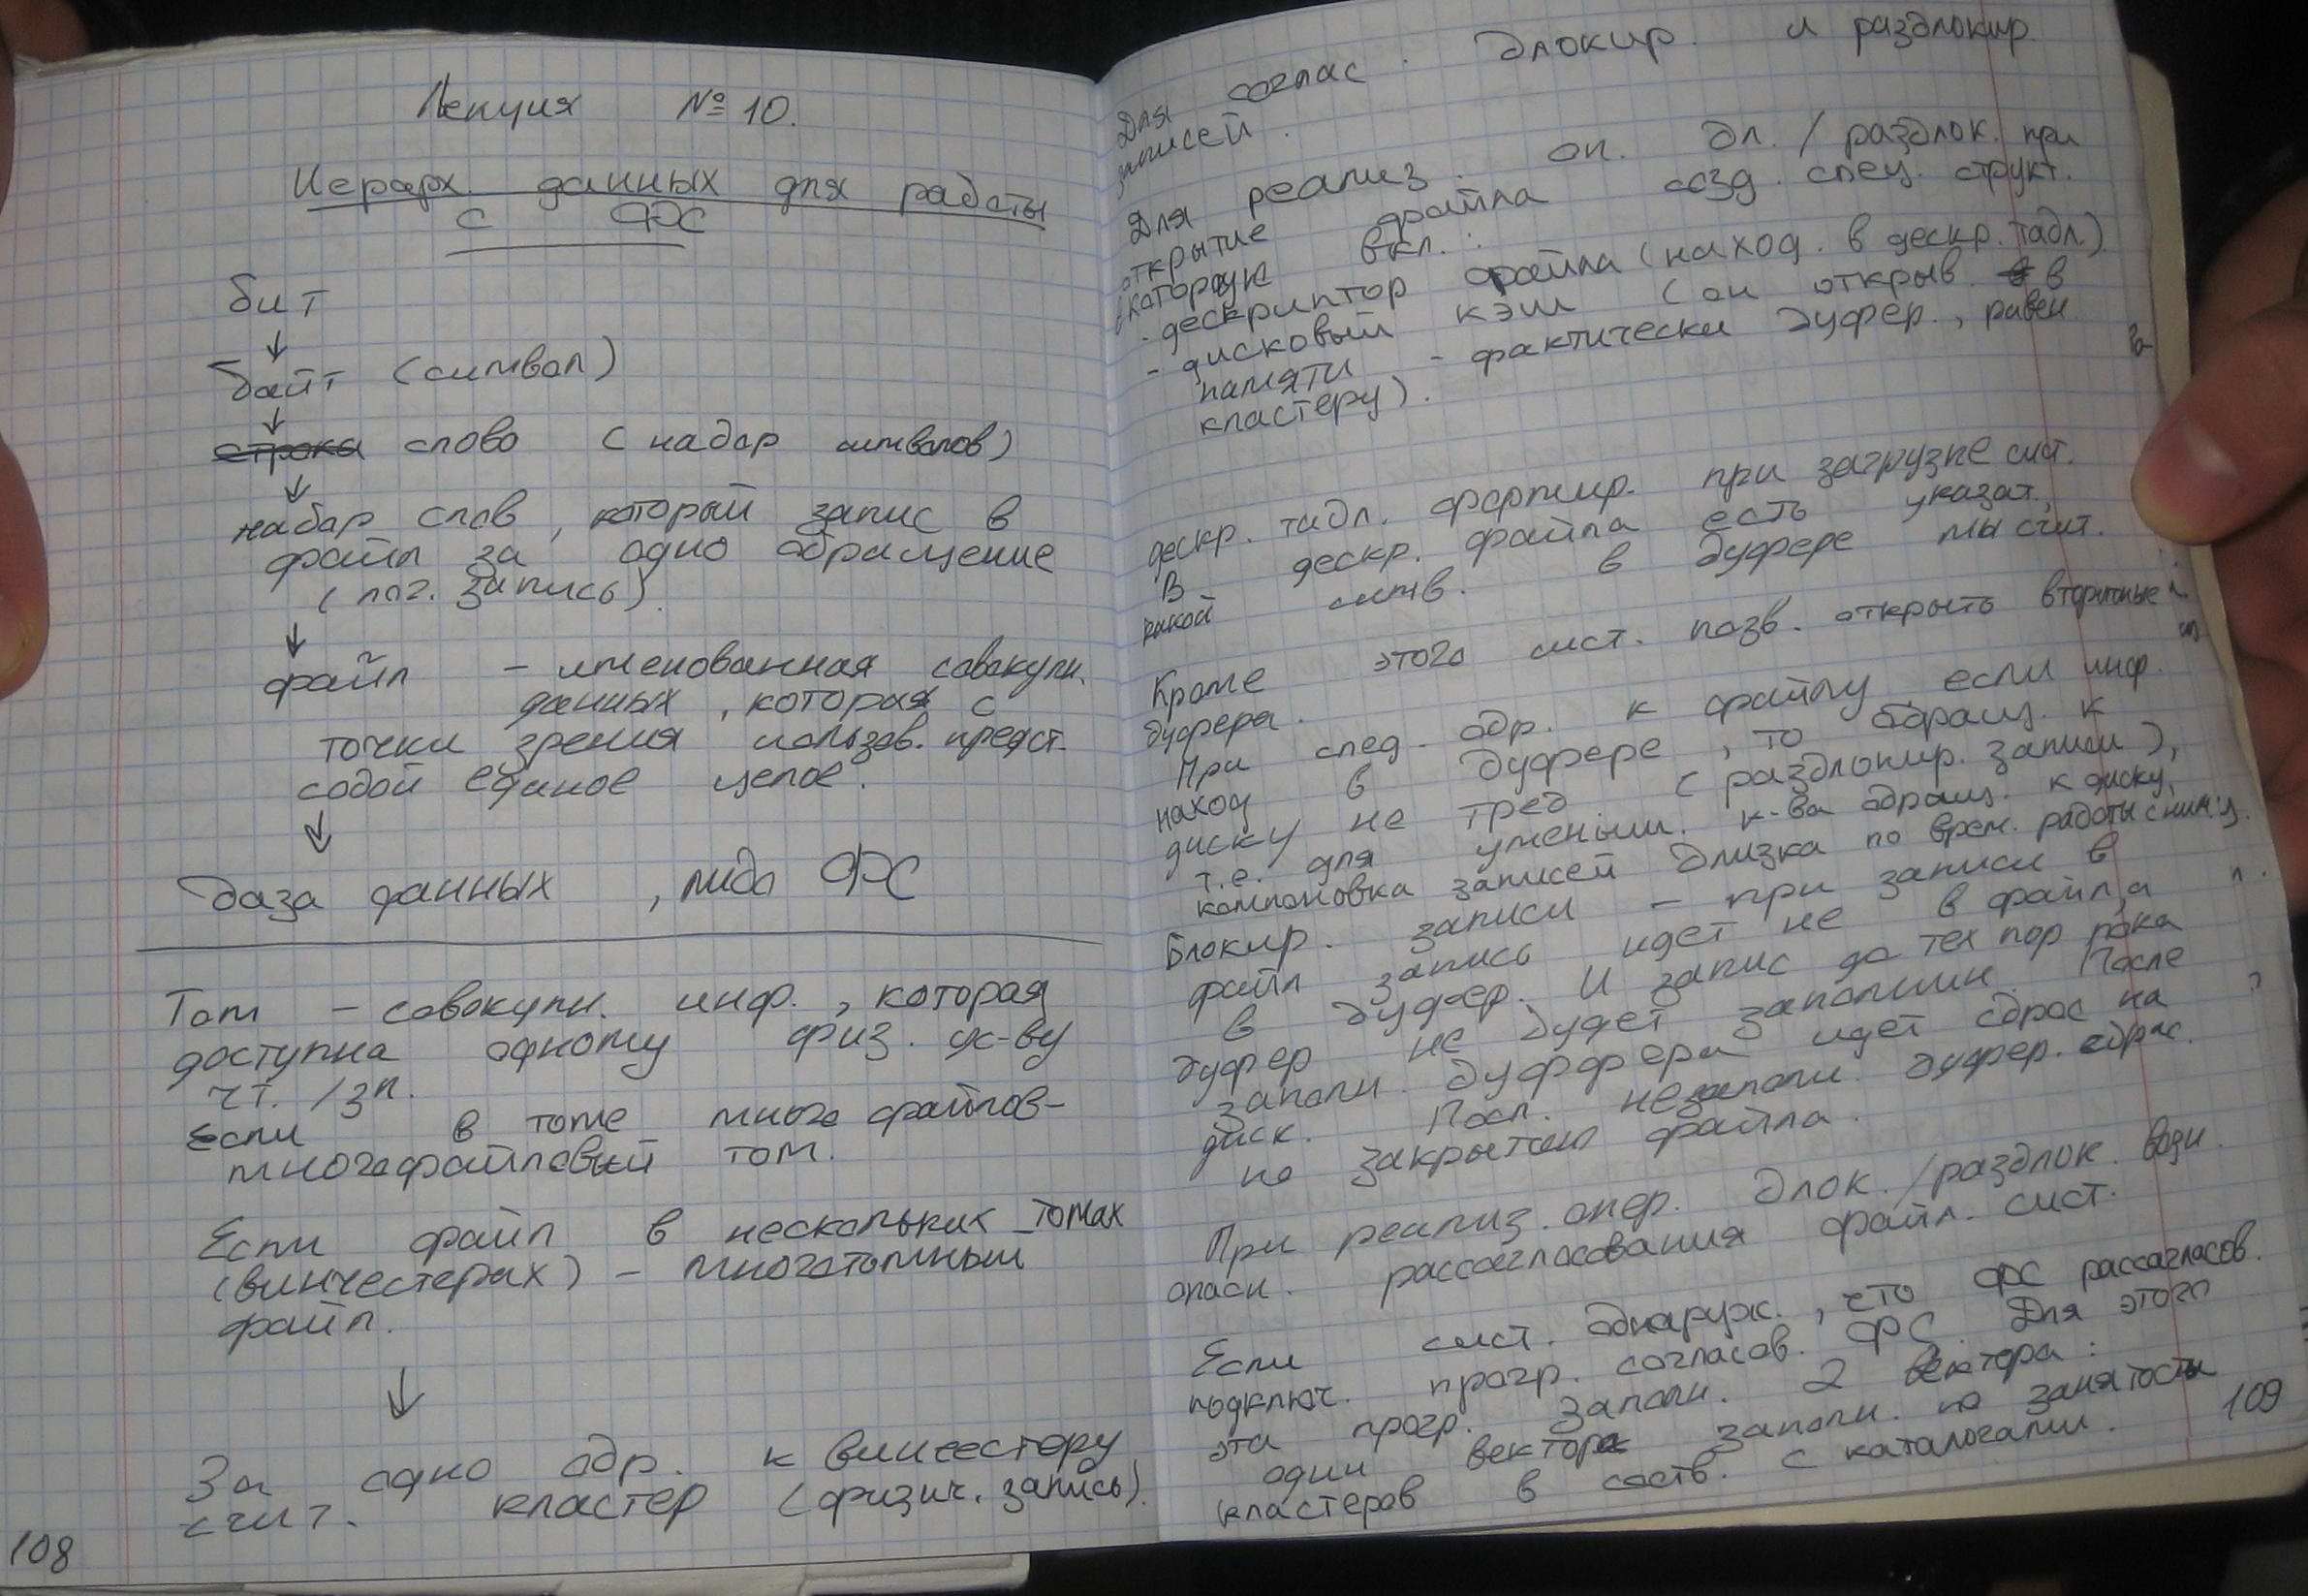 Лекция № 10.
Иерарх. данных для работы
с ФС
бит
↓
байт (символ)
↓
~~строка~~ слово (набор символов)
↓
набор слов, который запис в
файл за одно обращение
(лог. запись).
↓
файл - именованная совокупн.
данных, которая с
точки зрения пользов. предст.
собой единое целое.
↓
база данных, либо ФС
Том - совокупн. инф., которая
доступна одному физ. ус-ву
чт. /зп.
Если в томе много файлов-
многофайловый том.
Если файл в нескольких томах
(винчестерах) - многотомный
файл.
↓
За одно обр. к винчестеру
счит. кластер (физич. запись).
108
Для соглас. блокир. и разблокир.
записей.
Для реализ. оп. бл. / разблок. при
открытие файла созд. спец. структ.
которую вкл.:
- дескриптор файла (наход. в дескр. табл.)
- дисковый кэш (он открыв. в
памяти - фактически буфер., равен
кластеру).
дескр. табл. формир. при загрузке сист.
В дескр. файла есть указат,
какой симв. в буфере мы счит.
Кроме этого сист. позв. открыть вторичные
буфера.
При след. обр. к файлу если инф.
наход в буфере, то обращ. к
диску не треб (разблокир. записи),
т.е. для уменьш. к-ва обращ. к диску,
компоновка записей близка по врем. работы с ними.
Блокир. записи - при записи в
файл запись идет не в файл, а
в буфер. И запис до тех пор пока
буфер не будет заполнин. После
заполн. буффера идет сброс на
диск. Посл. незаполн. буфер. сбрас.
по закрытию файла.
При реализ. опер. блок. /разблок. возн.
опасн. рассогласования файл. сист.
Если сист. обнаруж., что ФС рассогласов.
подключ. прогр. согласов. ФС. Для этого
эта прогр. заполн. 2 вектора:
один вектора заполн. по занятости
кластеров в соотв. с каталогами.
109